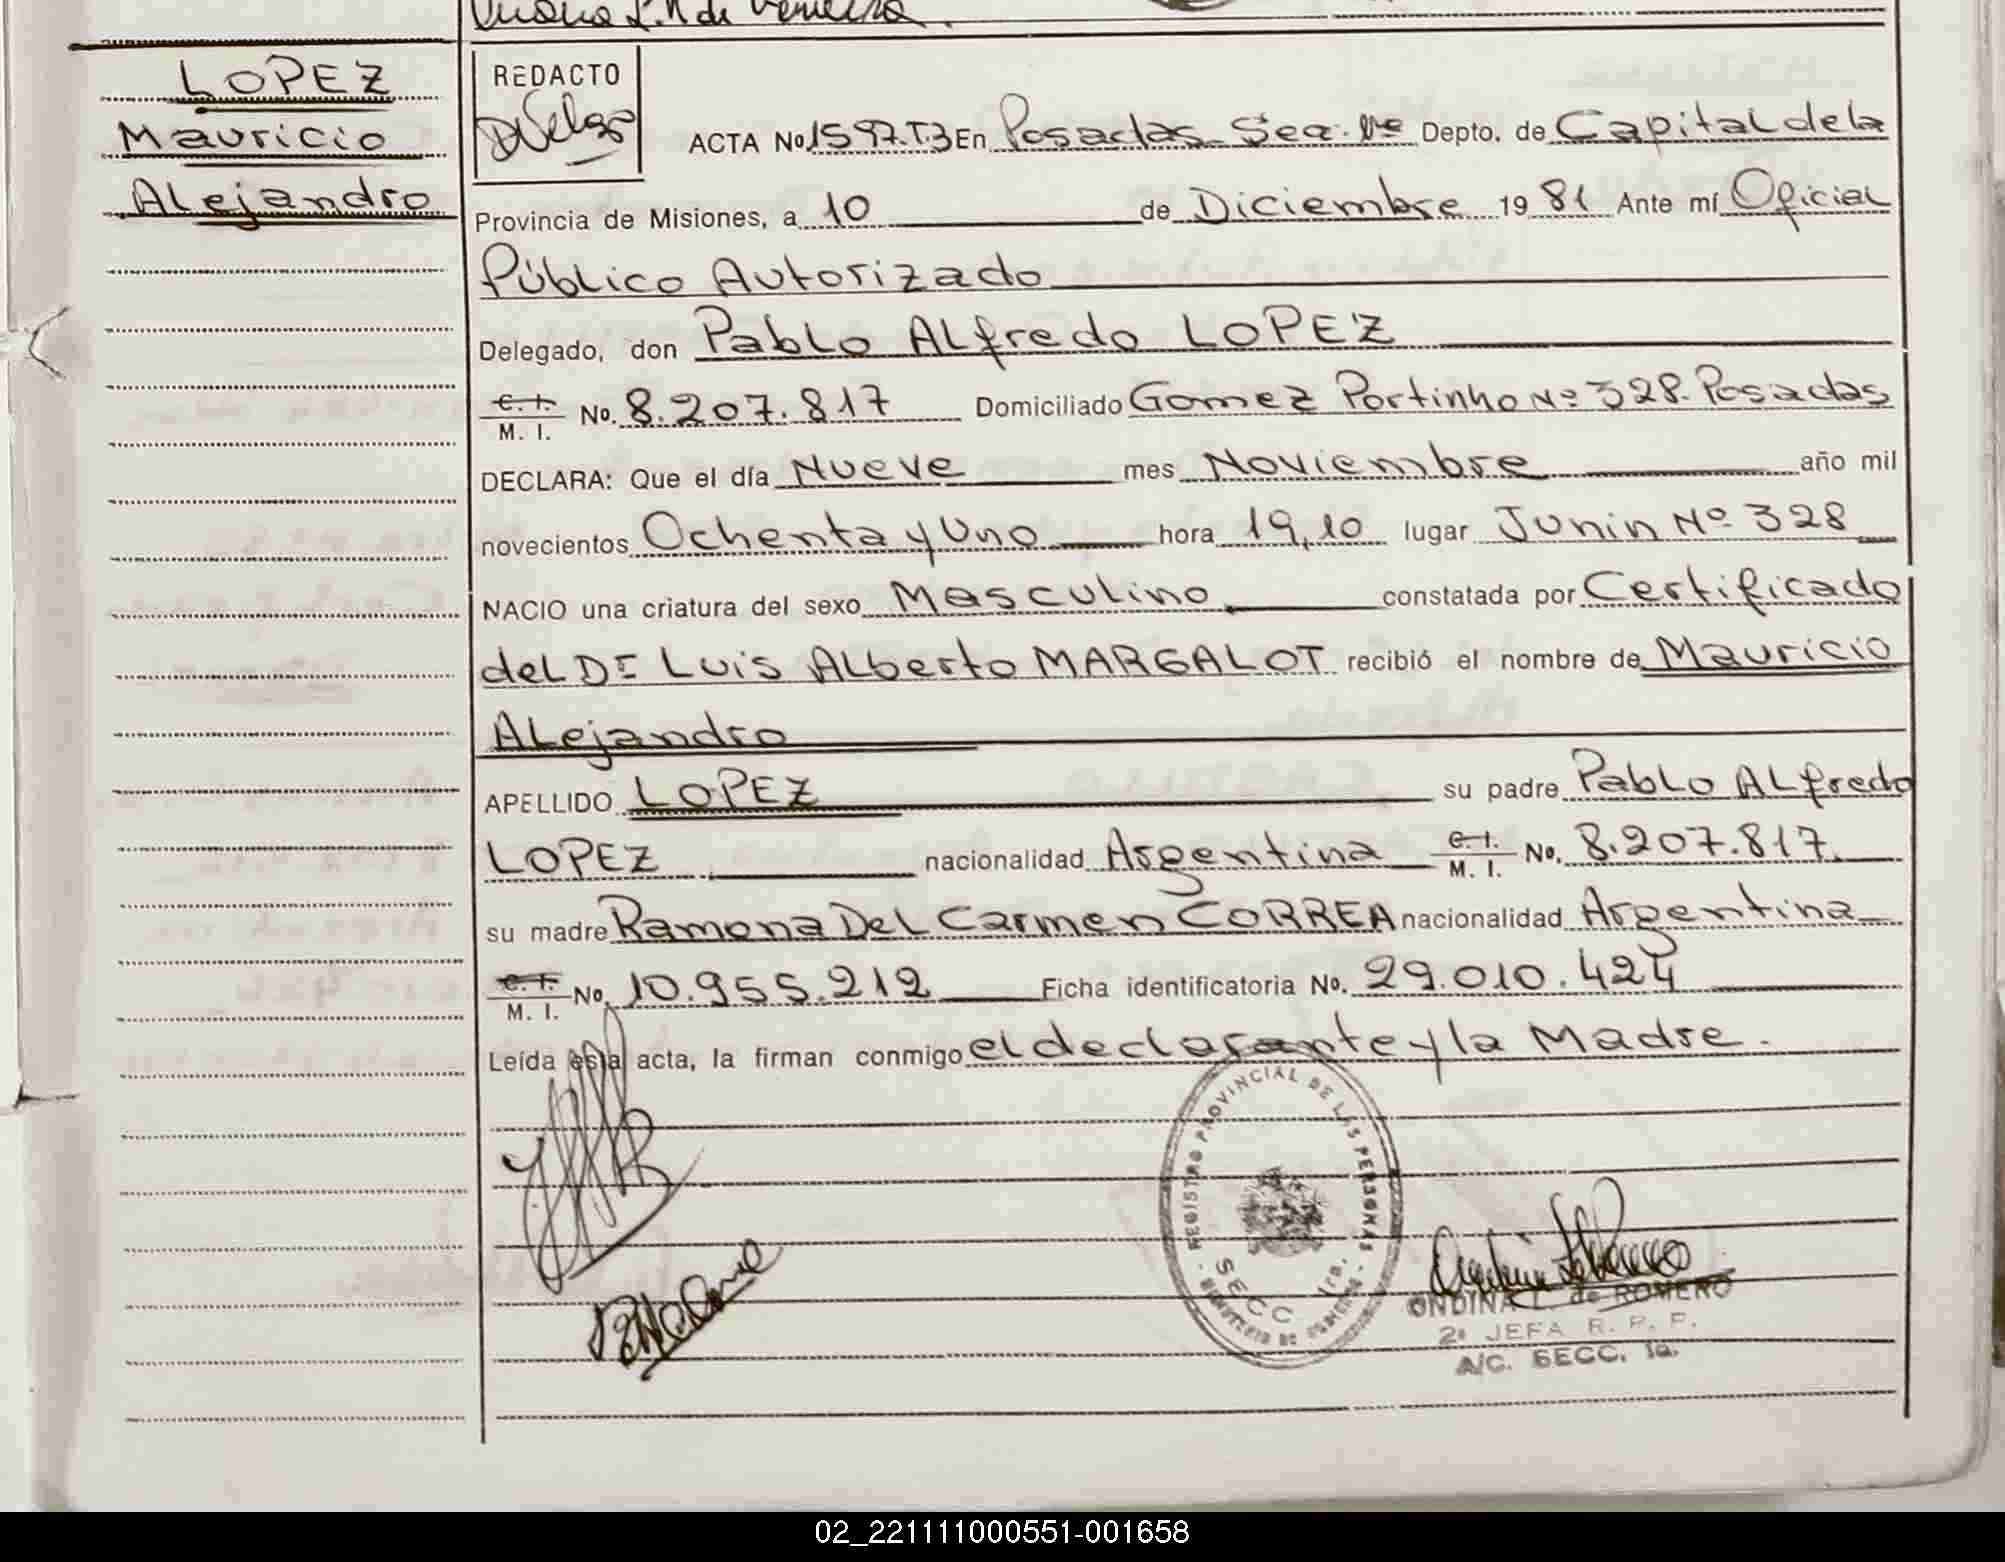 LOPEZ
Mauricio
Alejandro
REDACTO
ACTA No 1597.T3 En Posadas Sea. 1ra Depto. de Capital de la
Provincia de Misiones, a 10 de Diciembre 19 81 Ante mí Oficial
Público Autorizado
Delegado, don Pablo Alfredo LOPEZ
C. I.
M. I. No. 8.207.817 Domiciliado Gomez Portinho Nº 328. Posadas
DECLARA: Que el día Nueve mes Noviembre año mil
novecientos Ochenta y Uno hora 19,10 lugar Junin Nº 328
NACIO una criatura del sexo Masculino constatada por Certificado
del Dr Luis Alberto MARGALOT recibió el nombre de Mauricio
Alejandro
APELLIDO LOPEZ su padre Pablo Alfredo
LOPEZ nacionalidad Argentina C. I. M. I. No. 8.207.817.
su madre Ramona Del Carmen CORREA nacionalidad Argentina
C. I.
M. I. No. 10.955.212 Ficha identificatoria No. 29.010.424
Leída esta acta, la firman conmigo el declarante y la Madre.
REGISTRO PROVINCIAL DE LAS PERSONAS
SECC. 1ra.
ONDINA L. de ROMERO
2ª JEFA R. P. P.
A/C. SECC. 1a.
02_221111000551-001658